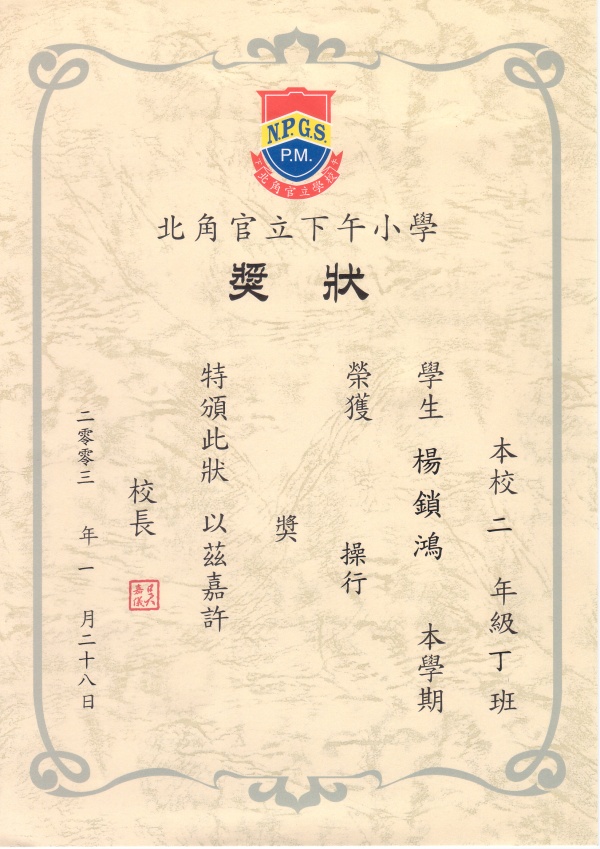 N.P.G.S.
P.M.
北角官立下午學校
北角官立下午小學
獎狀
本校二年級丁班
學生 楊鎖鴻 本學期
榮獲 操行
獎
特頒此狀 以茲嘉許
校長
嘉儀
二零零三 年 一 月二十八日